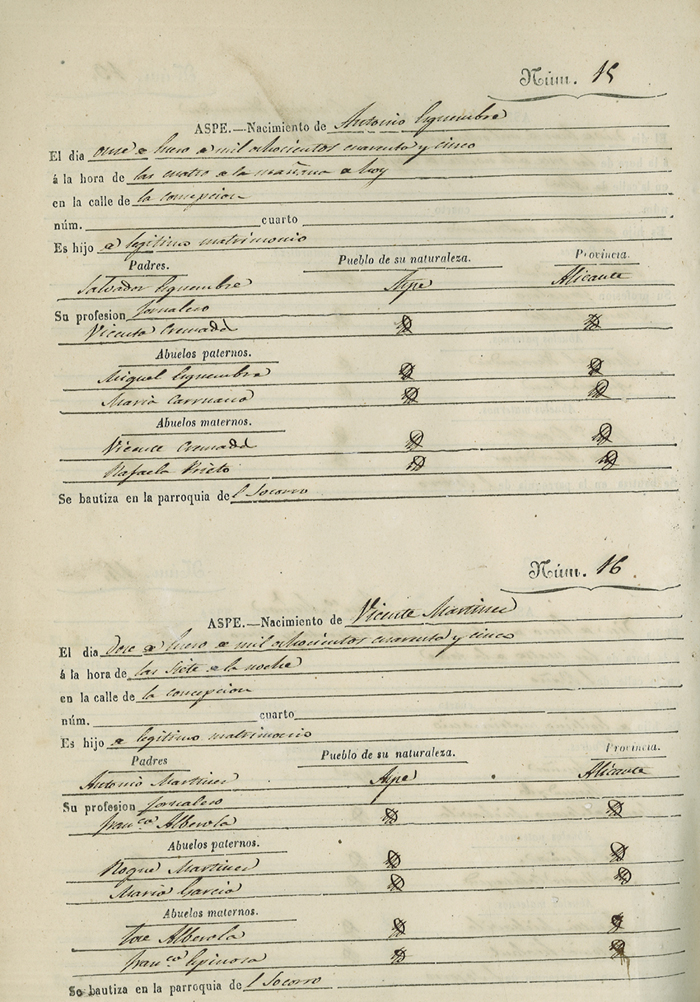 Núm. 15
ASPE.—Nacimiento de Antonio Yquembre
El dia onse de Enero de mil ochocientos cuarenta y cinco
á la hora de las cuatro de la mañana de hoy
en la calle de la concepcion
núm. cuarto
Es hijo de legitimo matrimonio
Padres. Pueblo de su naturaleza. Provincia.
Salvador Yquembre Aspe Alicante
Su profesion Jornalero
Vicenta Cremades
Abuelos paternos.
Miguel Yquembre
Maria
Abuelos maternos.
Vicente Cremades
Rafaela Prieto
Se bautiza en la parroquia de l Socorro
Núm. 16
ASPE.—Nacimiento de Vicente Martinez
El dia dose de Enero de mil ochocientos cuarenta y cinco
á la hora de las siete de la noche
en la calle de la concepcion
núm. cuarto
Es hijo de legitimo matrimonio
Padres Pueblo de su naturaleza. Provincia.
Antonio Martinez Aspe Alicante
Su profesion Jornalero
Franca Alberola
Abuelos paternos.
Roque Martinez
Maria Garcia
Abuelos maternos.
Jose Alberola
Franca Espinosa
Se bautiza en la parroquia de l Socorro